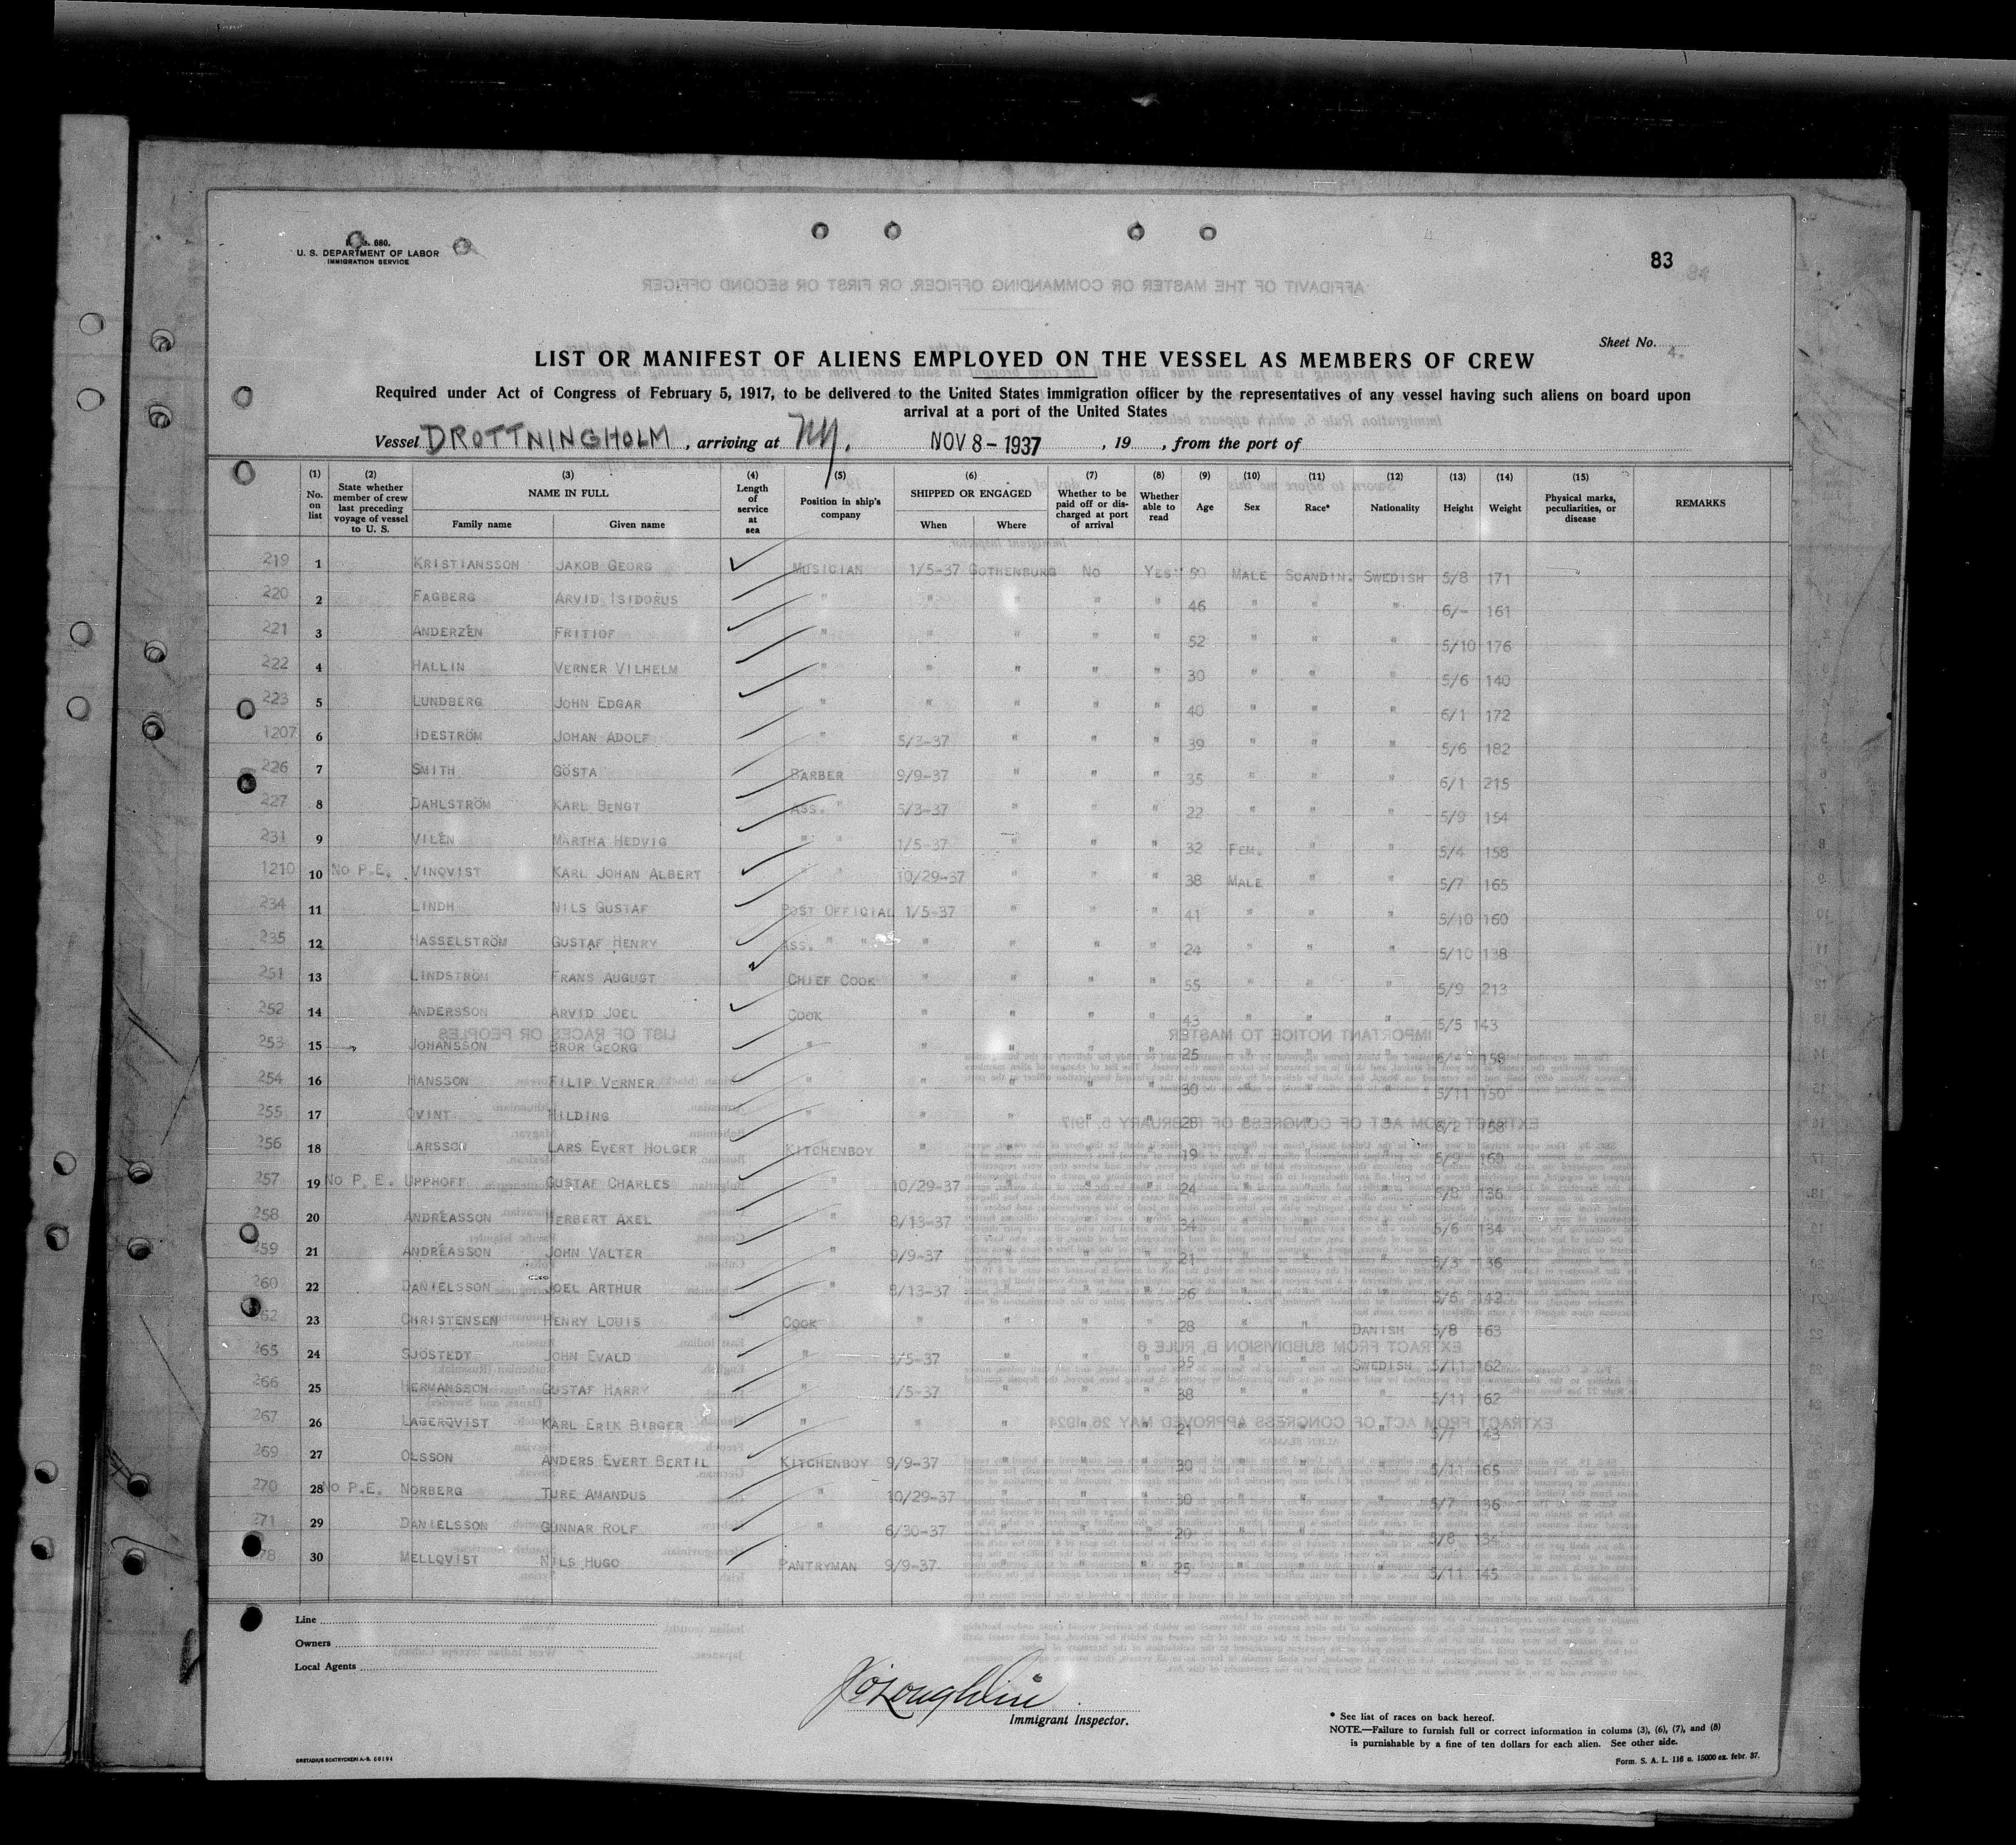 U. S. DEPARTMENT OF LABOR
IMMIGRATION SERVICE
83
Sheet No. 4.
LIST OR MANIFEST OF ALIENS EMPLOYED ON THE VESSEL AS MEMBERS OF CREW
Required under Act of Congress of February 5, 1917, to be delivered to the United States immigration officer by the representatives of any vessel having such aliens on board upon
arrival at a port of the United States
Vessel DROTTNINGHOLM, arriving at NY. NOV 8 - 1937, 19, from the port of
(1) No. on list (2) State whether member of crew last preceding voyage of vessel to U. S. (3) NAME IN FULL Family name Given name (4) Length of service at sea (5) Position in ship's company (6) SHIPPED OR ENGAGED When Where (7) Whether to be paid off or discharged at port of arrival (8) Whether able to read (9) Age (10) Sex (11) Race* (12) Nationality (13) Height (14) Weight (15) Physical marks, peculiarities, or disease REMARKS
219 1 KRISTIANSSON JAKOB GEORG MUSICIAN 1/5-37 GOTHENBURG NO YES 50 MALE SCANDIN. SWEDISH 5/8 171
220 2 FAGBERG ARVID ISIDORUS " " " " " 46 " " " 6/- 161
221 3 ANDERZÉN FRITIOF " " " " " 52 " " " 5/10 176
222 4 HALLIN VERNER VILHELM " " " " " 30 " " " 5/6 140
223 5 LUNDBERG JOHN EDGAR " " " " " 40 " " " 6/1 172
1207 6 IDESTRÖM JOHAN ADOLF " 5/3-37 " " " 39 " " " 5/6 182
226 7 SMITH GÖSTA BARBER 9/9-37 " " " 35 " " " 6/1 215
227 8 DAHLSTRÖM KARL BENGT ASS. " 5/3-37 " " " 22 " " " 5/9 154
231 9 VILÉN MARTHA HEDVIG " " 1/5-37 " " " 32 FEM. " " 5/4 158
1210 10 NO P.E. VINQVIST KARL JOHAN ALBERT " " 10/29-37 " " " 38 MALE " " 5/7 165
234 11 LINDH NILS GUSTAF POST OFFICIAL 1/5-37 " " " 41 " " " 5/10 160
235 12 HASSELSTRÖM GUSTAF HENRY ASS. " " " " " " 24 " " " 5/10 138
251 13 LINDSTRÖM FRANS AUGUST CHIEF COOK " " " " 55 " " " 5/9 213
252 14 ANDERSSON ARVID JOEL COOK " " " " 43 " " " 5/5 143
253 15 JOHANSSON BROR GEORG " " " " " 25 " " "
254 16 HANSSON FILIP VERNER " " " " " 30 " " " 5/11 150
255 17 QVINT HILDING " " " " " 28 " " " 6/2 158
256 18 LARSSON LARS EVERT HOLGER KITCHENBOY " " " " 19 " " " 5/9 160
257 19 NO P.E. UPPHOFF GUSTAF CHARLES " 10/29-37 " " " 24 " " " 5/8 136
258 20 ANDRÉASSON HERBERT AXEL " 8/13-37 " " " 34 " " " 5/6 134
259 21 ANDRÉASSON JOHN VALTER " 9/9-37 " " " 21 " " " 5/3 136
260 22 DANIELSSON JOEL ARTHUR " 8/13-37 " " " 36 " " " 5/6 142
262 23 CHRISTENSEN HENRY LOUIS COOK " " " " 28 " " DANISH 5/8 163
265 24 SJÖSTEDT JOHN EVALD " " " " 35 " " SWEDISH 5/11 162
266 25 HERMANSSON GUSTAF HARRY " 1/5-37 " " " 38 " " " 5/11 162
267 26 LAGERQVIST KARL ERIK BIRGER " " " " " 21 " " " 5/7 143
269 27 OLSSON ANDERS EVERT BERTIL KITCHENBOY 9/9-37 " " " 30 " " " 5/11 165
270 28 NO P.E. NORBERG TURE AMANDUS " 10/29-37 " " " 30 " " " 5/7 136
271 29 DANIELSSON GUNNAR ROLF " 6/30-37 " " " 20 " " " 5/8 134
30 MELLQVIST NILS HUGO PANTRYMAN 9/9-37 " " " 25 " " " 5/11 145
Line
Owners
Local Agents
Immigrant Inspector.
* See list of races on back hereof.
NOTE.—Failure to furnish full or correct information in colums (3), (6), (7), and (8)
is punishable by a fine of ten dollars for each alien. See other side.
Form. S. A. L. 116 a. 15000 ex. febr. 37.